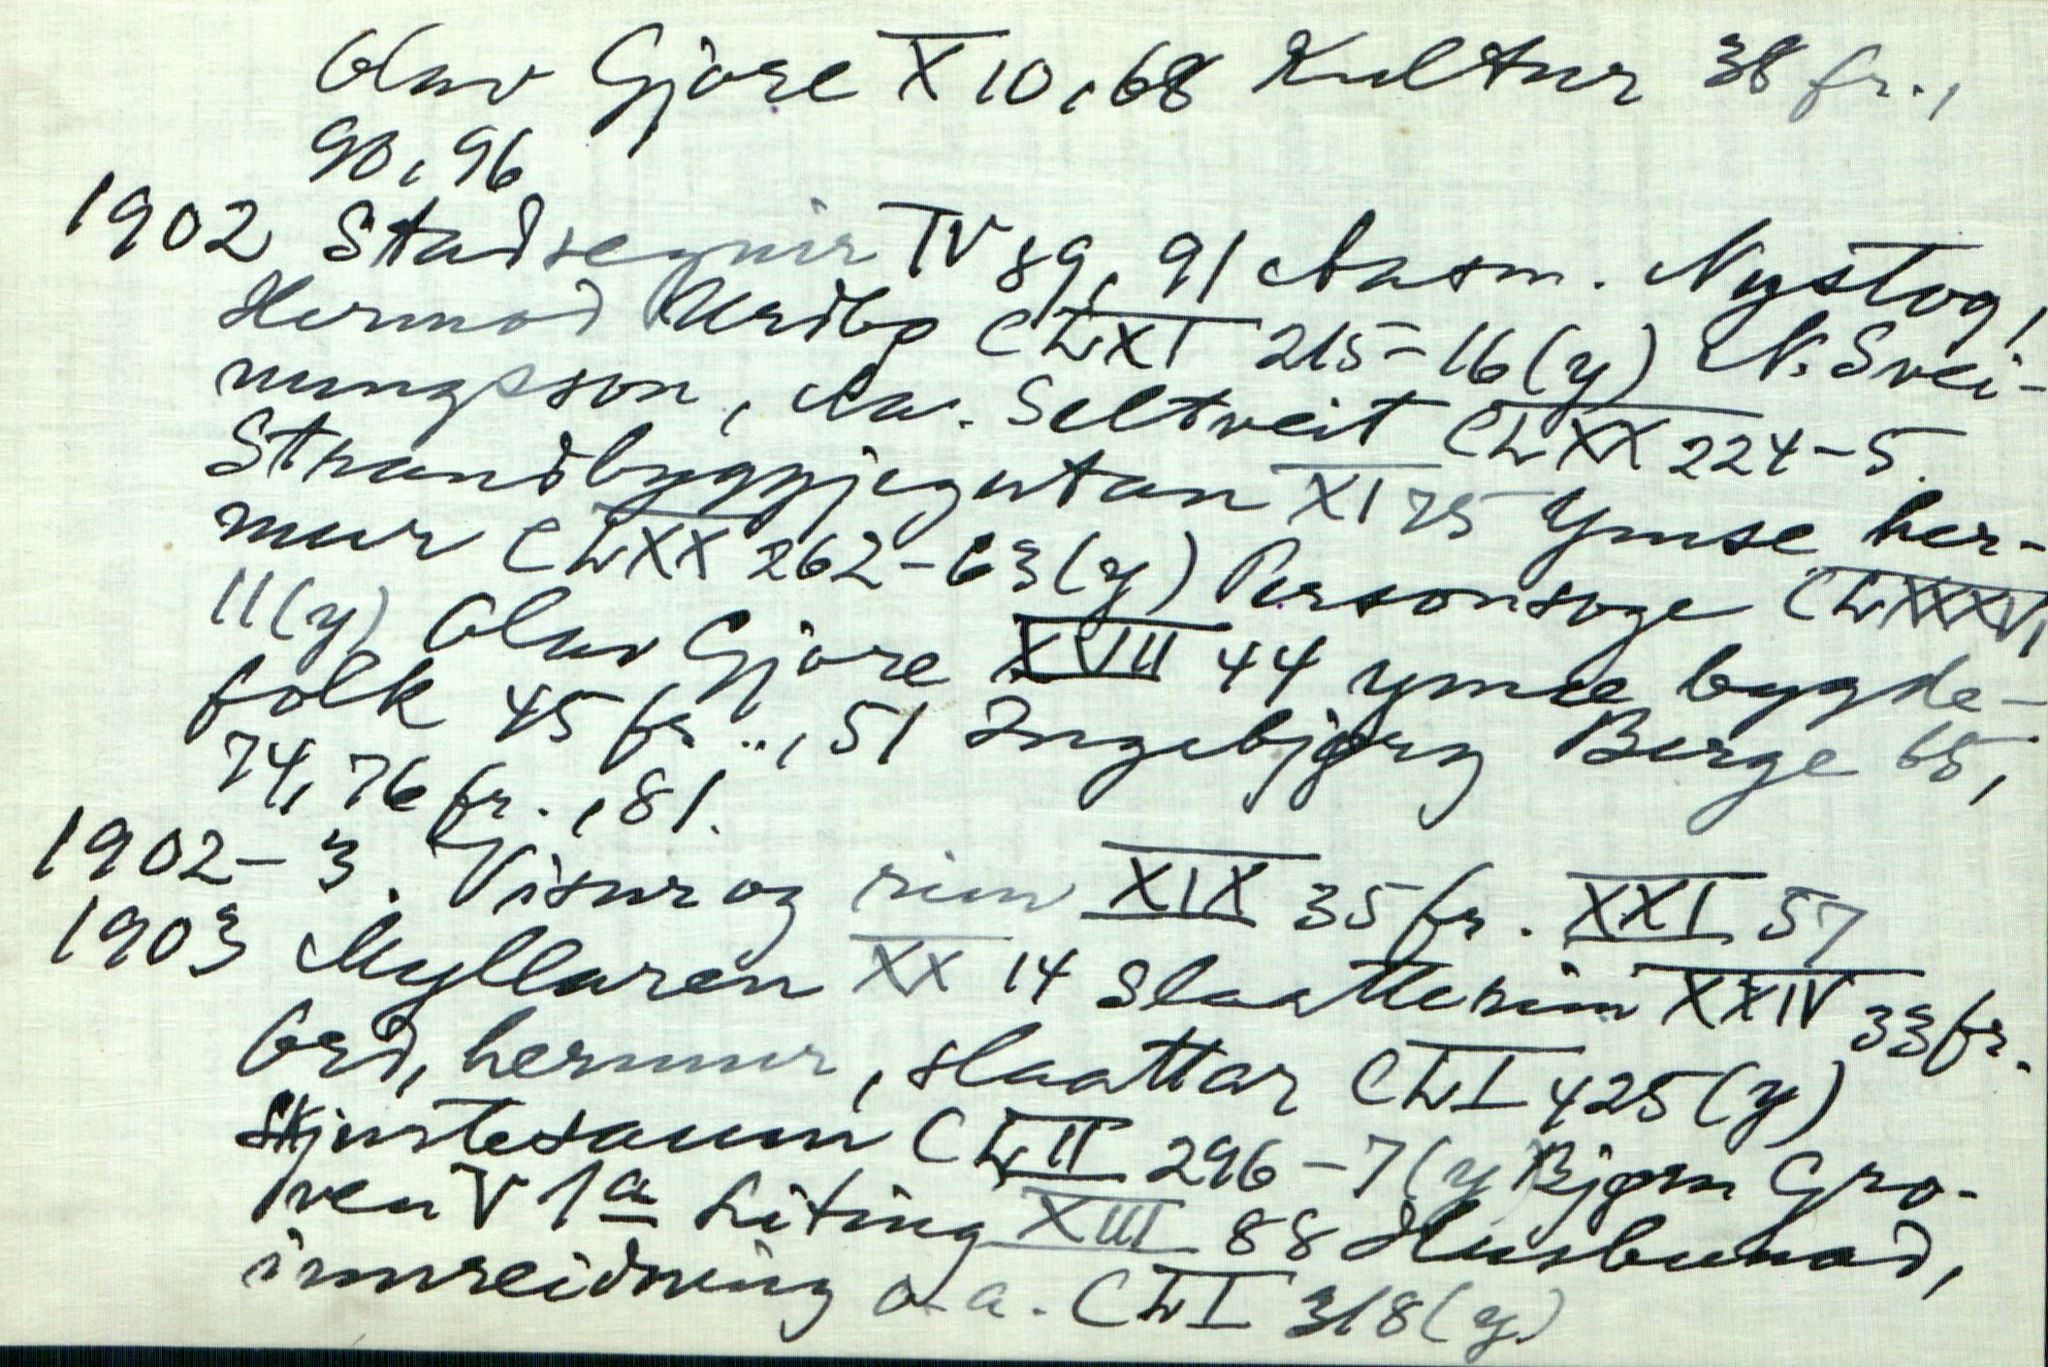 Olav Gjøre X 10, 68 Kultur 38 fr.,
90, 96
1902 Stadsegnir IV 89, 91 Aasm. Nystog,
Hermod Urdbø CLXI 215-16 (y) N. Svei-
nungsson, Aa. Seltveit CLXX 224-5.
Strandbyggjegutan XI 75 Ymse her-
mur CLXX 262-63 (y) Personsoge CLXXXVI
11 (y) Olav Gjøre XVII 44 ymse bygde-
folk 45 fr.., 51 Ingebjørg Berge 65,
74, 76 fr., 81.
1902-3. Visur og rim XIX 35 fr. XXI 57
1903 Myllaren XX 14 Slaatterim XXIV 33 fr.
Ord, hermur, slaattar CLI 425 (y)
Skjurtesaum CLII 296-7 (y) Bjørn Gro-
ven V 1a Liting XIII 88 Husbunad,
innreidning o.a. CLI 318 (y)